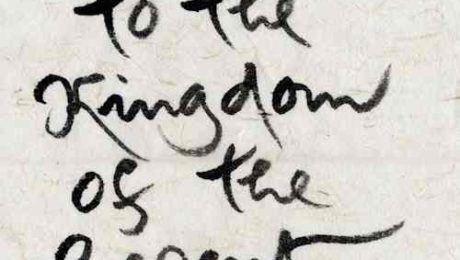 to the
Kingdom
of the